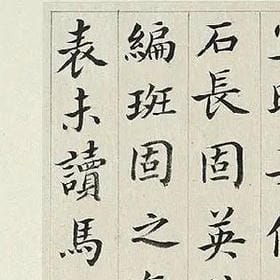 石長固英
編班固之
表未讀馬